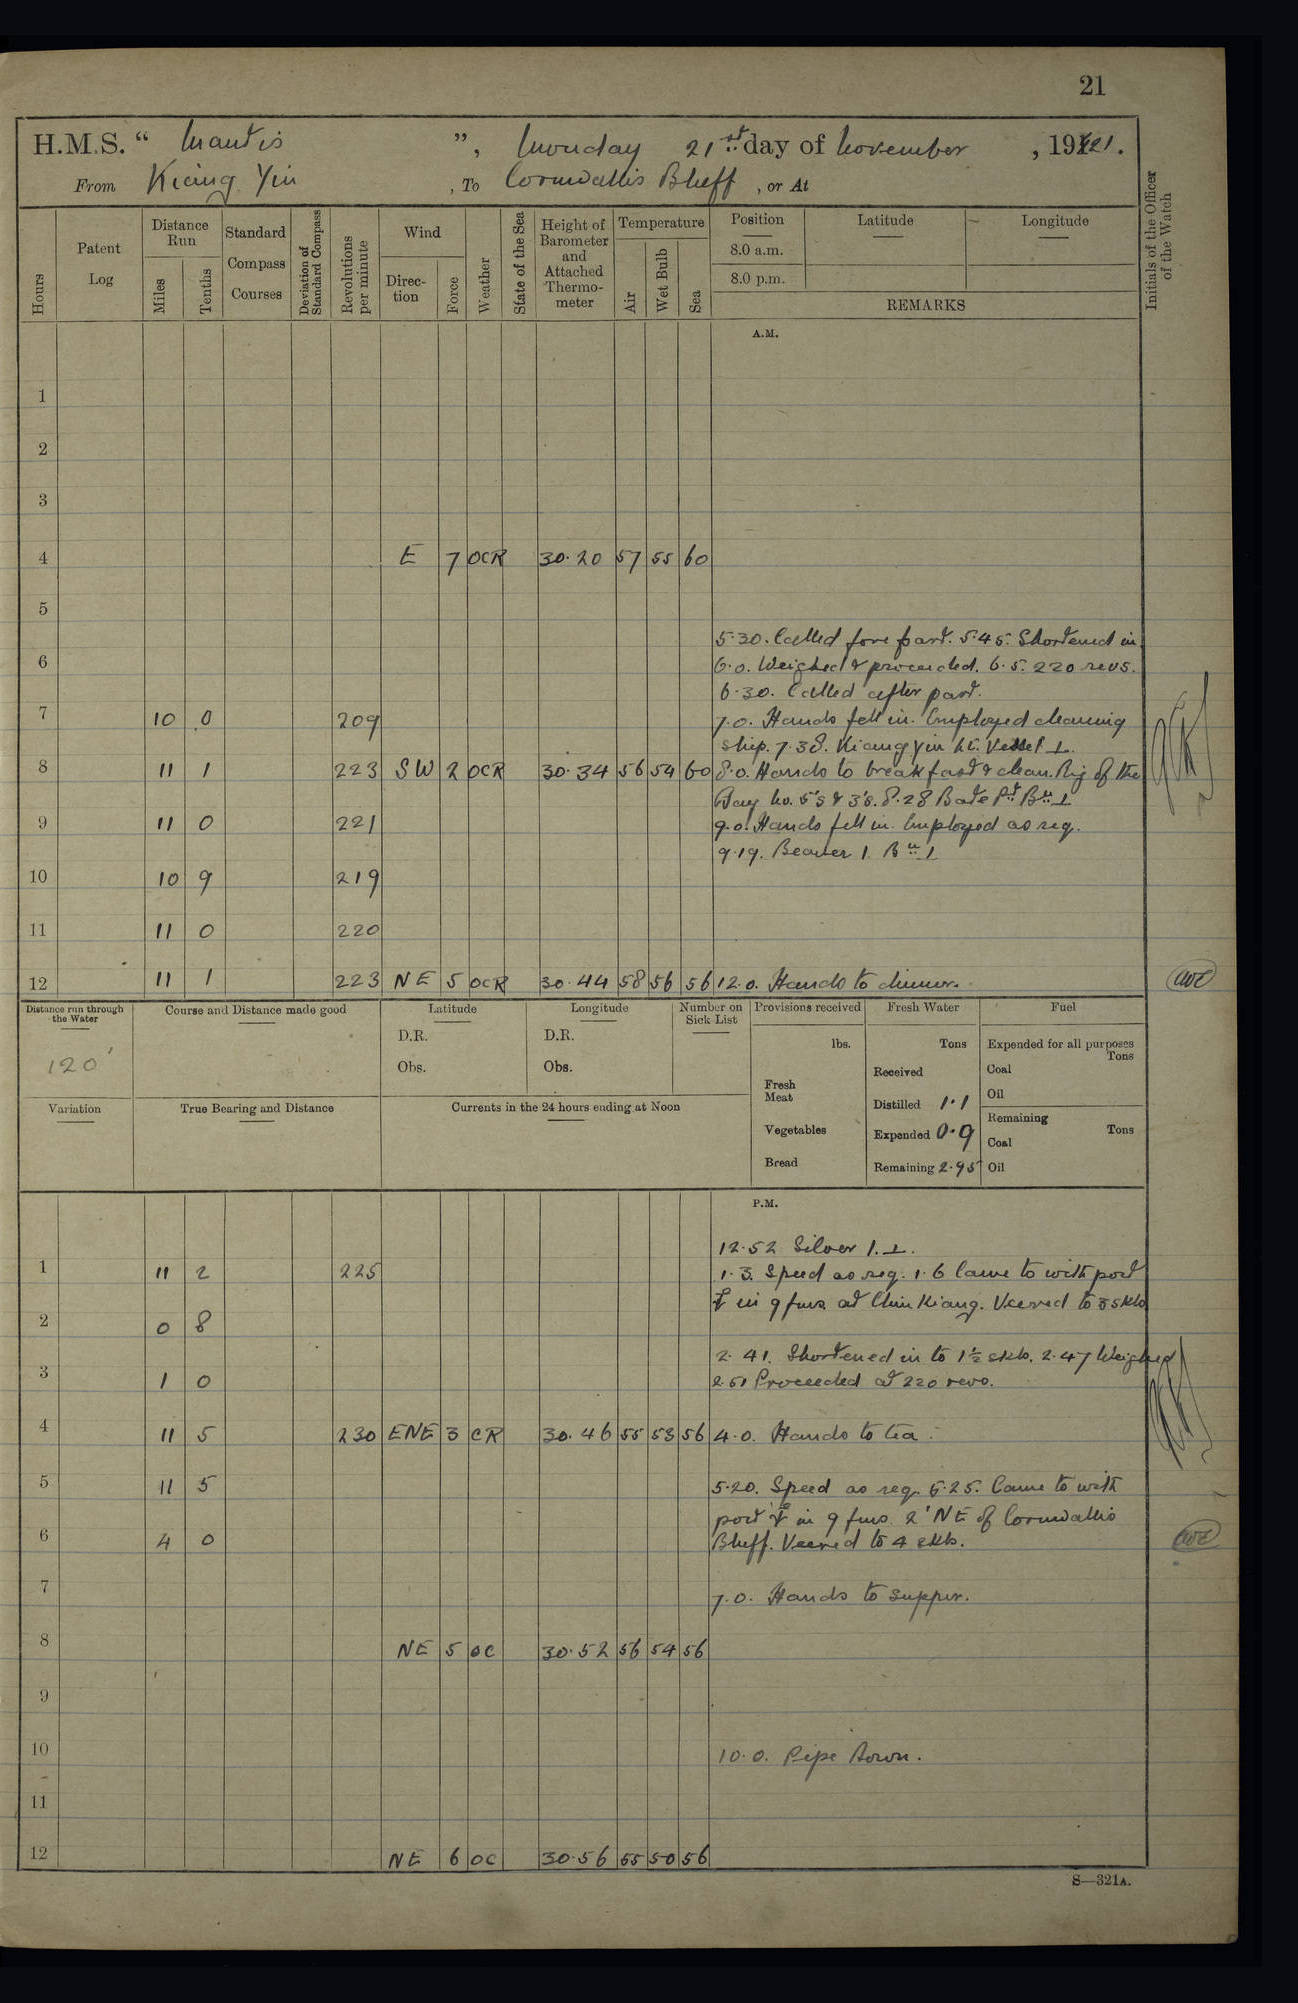 21
H.M.S. “ Mantis ”, Monday 21st day of November, 1921.
From Kiang Yin, To Cornwallis Bluff, or At
Hours
Patent Log
Distance Run
Miles
Tenths
Standard Compass Courses
Deviation of Standard Compass
Revolutions per minute
Wind
Direction
Force
Weather
State of the Sea
Height of Barometer and Attached Thermometer
Temperature
Air
Wet Bulb
Sea
Position
8.0 a.m.
8.0 p.m.
Latitude
Longitude
REMARKS
Initials of the Officer of the Watch
A.M.
1
2
3
4 E 7 OCR 30.20 57 55 60
5
5.30. Called fore part. 5.45. Shortened in.
6 6.0. Weighed & proceeded. 6.5. 220 revs.
6.30. Called after part.
7 10 0 209 7.0. Hands fell in. Employed cleaning
ship. 7.38. Kiang Yin Lt. Vessel ⊥.
8 11 1 223 SW 2 OCR 30.34 56 54 60 8.0. Hands to breakfast & clean. Rig of the
Day No. 5's & 3's. 8.28 Bate Pt Bn ⊥
9 11 0 221 9.0. Hands fell in. Employed as req.
9.19. Beaver I. Bn ⊥
10 10 9 219
11 11 0 220
12 11 1 223 NE 5 OCR 30.44 58 56 56 12.0. Hands to dinner.
Distance run through the Water
120'
Course and Distance made good
Latitude
D.R.
Obs.
Longitude
D.R.
Obs.
Number on Sick List
Provisions received
lbs.
Fresh Meat
Vegetables
Bread
Fresh Water
Tons
Received
Distilled 1.1
Expended 0.9
Remaining 2.95
Fuel
Expended for all purposes
Tons
Coal
Oil
Remaining
Tons
Coal
Oil
Variation
True Bearing and Distance
Currents in the 24 hours ending at Noon
P.M.
12.52 Silver I. ⊥.
1 11 2 225 1.3. Speed as req. 1.6 Came to with port
⚓ in 9 fms at Chin Kiang. Veered to 3 skls
2 0 8
2.41. Shortened in to 1½ skls. 2.47 Weighed
3 1 0 2.51 Proceeded at 220 revs.
4 11 5 230 ENE 3 CR 30.46 55 53 56 4.0. Hands to tea.
5 11 5 5.20. Speed as req. 5.25. Came to with
port ⚓ in 9 fms. 2' NE of Cornwallis
6 4 0 Bluff. Veered to 4 skls.
7 7.0. Hands to supper.
8 NE 5 OC 30.52 56 54 56
9
10 10.0. Pipe down.
11
12 NE 6 OC 30.56 55 50 56
S—321A.